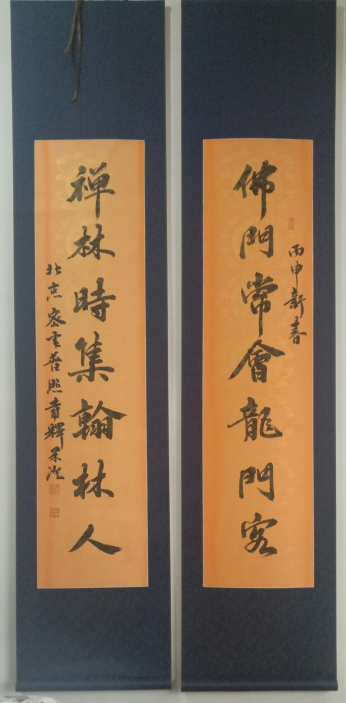 佛門常會龍門客
丙申新春
禅林時集翰林人
北京密雲普照寺輝